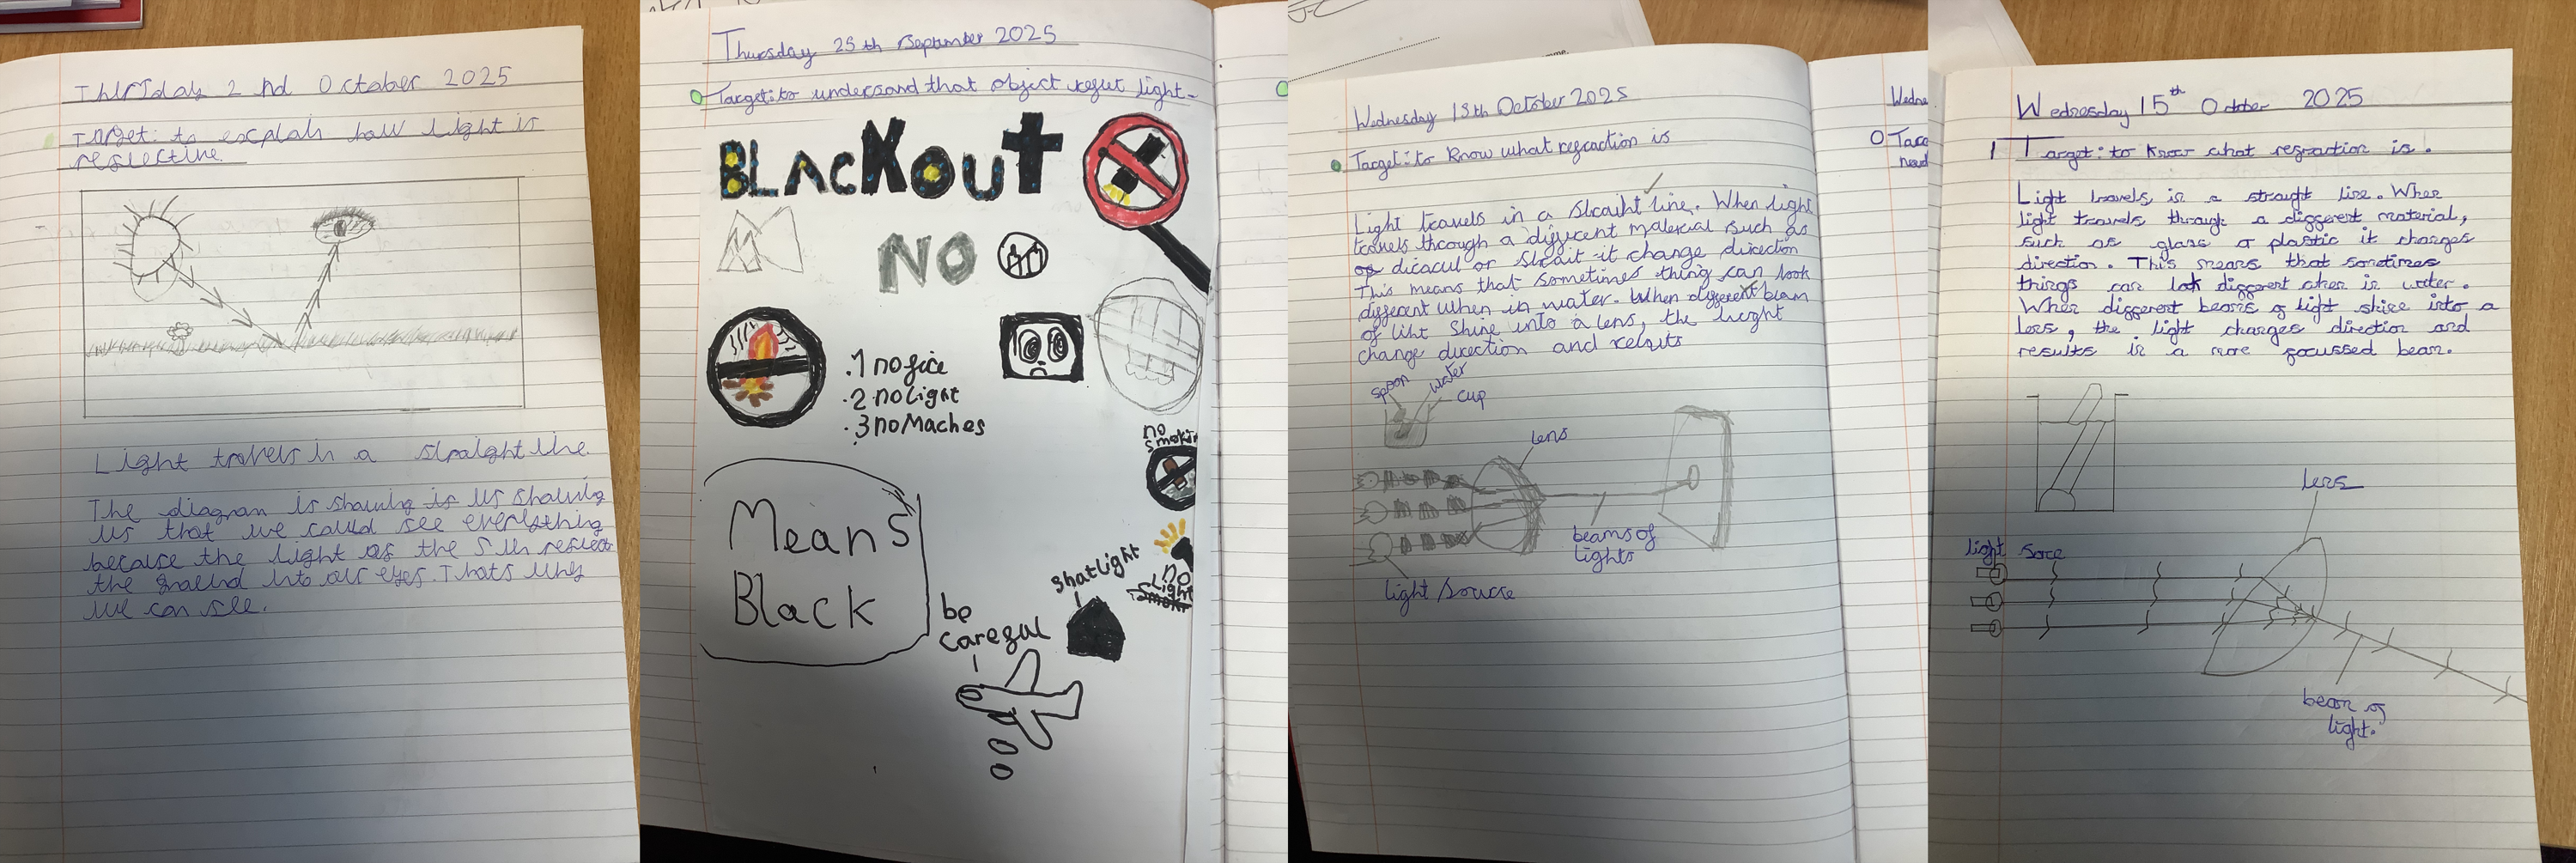 Thursday 2nd October 2025
Target: to explain how light is
reflective.
Light travels in a straight line.
The diagram is showing is us showing
us that we could see everything
because the light of the sun reflect
the ground into our eyes. Thats why
we can see.
Thursday 25th September 2025
Target: to undersand that object light.
BLACKOUT
NO
.1 no fire
.2 no light
.3 no Maches
no
smokin
Means
Black
shatlight
no
light
be
caregul
Wednesday 15th October 2025
Target: to know what regraction is
Light travels in a straiht line. When light
travels through a different matereial such as
or it change direction
This means that sometimes thing can look
different when in water. When different beam
of liht shine into a lens, the light
change direction and relsuts
spoon
water
cup
lens
beams of
lights
light source
Wedne
Targ
need
Wednesday 15th October 2025
1 Target: to know what regraction is.
Light travels in a straight line. When
light travels through a diggerent material,
such as glass or plastic it changes
direction. This means that sometimes
things can look diggerent when in water.
When diggerent beams of light shine into a
lens, the light changes direction and
results in a more focussed beam.
lens
light sorce
beam of
light.